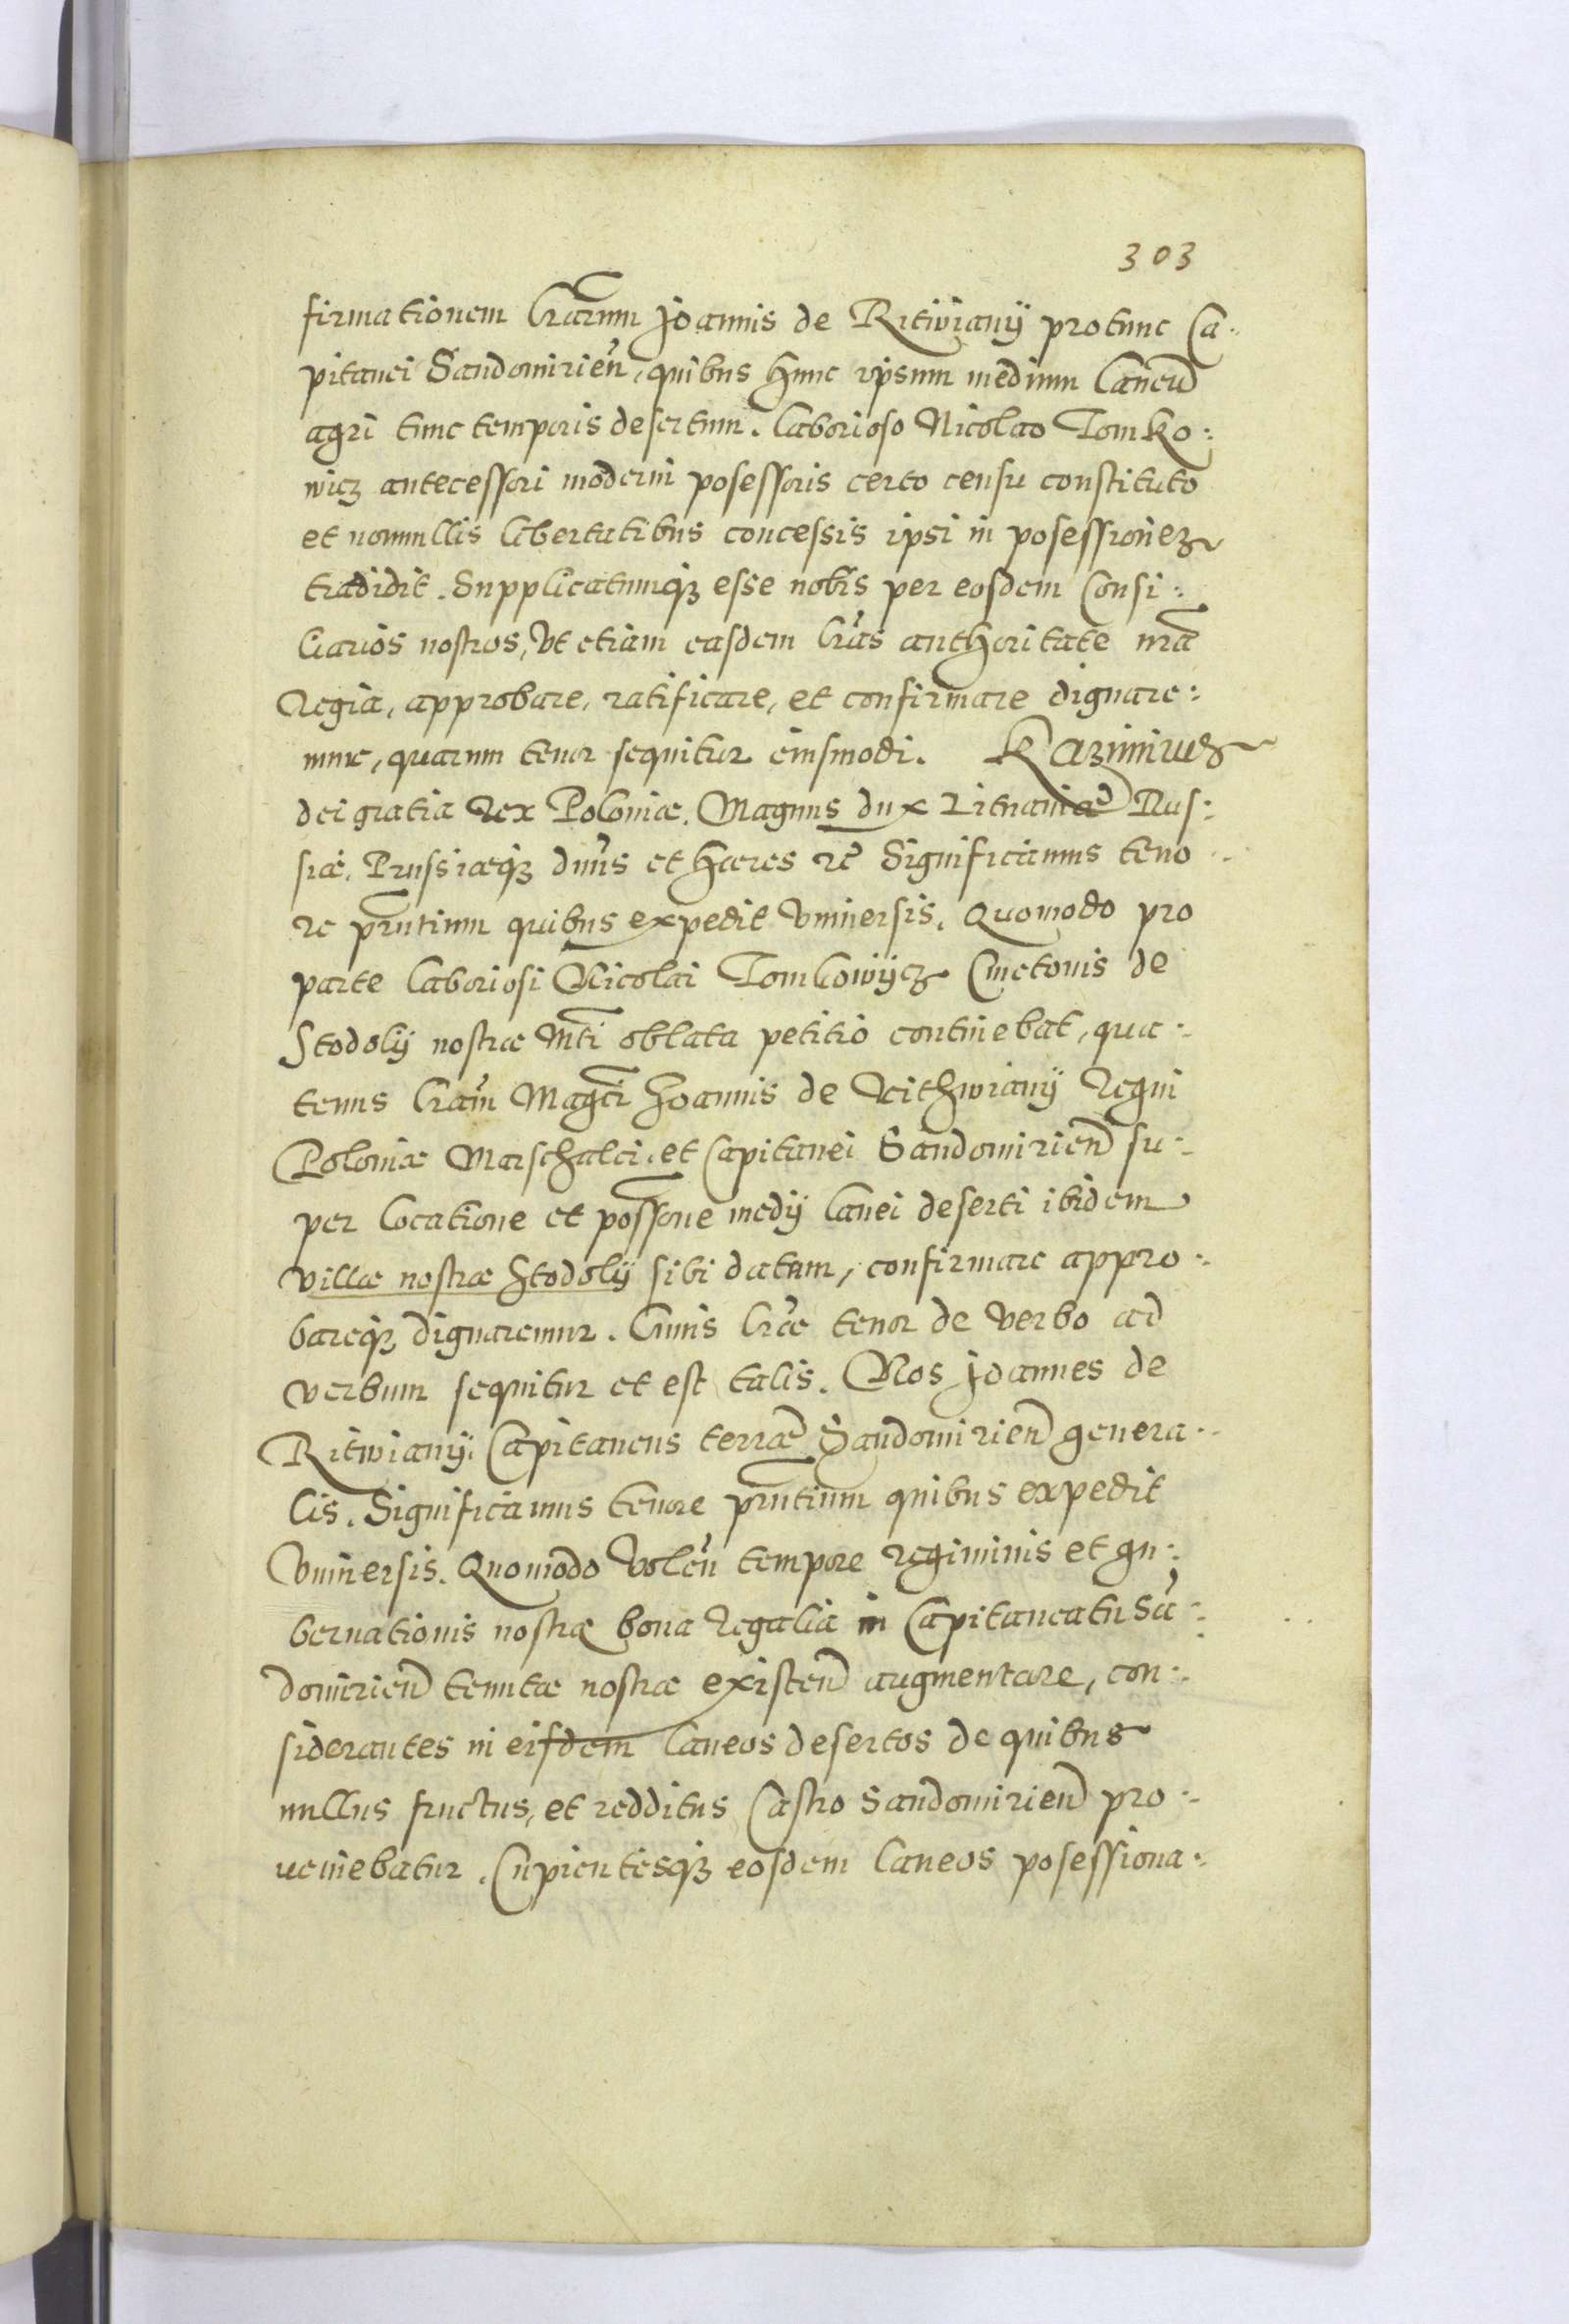 303
firmationem lrarum Joannis de Ritwiany protunc Ca-
pitanei Sandomirien, quibus hunc ipsum medium Laneu
agri tunc temporis desertum. laborioso Nicolao Tomko-
wicz antecessori moderni posessoris certo censu constituto
et nonnullis libertatibus concessis ipsi in posessionez
tradidit. Supplicatumqz esse nobis per eosdem Consi-
liarios nostros, Vt etiam easdem lras authoritate nra
Regia, approbare, ratificare, et confirmare dignare-
mur, quarum tenor sequitur eiusmodi. Kazimirus
dei gratia Rex Poloniæ. Magnus dux Lituaniæ Rus-
siæ. Prussiæqz dnus et hæres rc Significamus teno-
re prntium quibus expedit Vniuersis. Quomodo pro
parte laboriosi Nicolai Tomkowijcz Cmetonis de
Stodolij nostræ Mti oblata petitio continebat, qua-
tenus lram Magci Joannis de Rithwiany Regni
Poloniæ Marschalci et Capitanei Sandomirien su-
per locatione et possione medij lanei deserti ibidem
villæ nostræ Stodolij sibi datam, confirmare appro-
bareqz dignaremur. Cuius lræ tenor de verbo ad
verbum sequitur et est talis. Nos Joannes de
Ritwiany. Capitaneus terræ Sandomirien genera-
lis. Significamus tenore prntium quibus expedit
Vniuersis. Quomodo Volen tempore regiminis et gu-
bernationis nostræ bona Regalia in Capitaneatu Sa-
domirien tenutæ nostræ existen augmentare, con-
siderantes in eisdem laneos desertos de quibus
nullus fructus, et redditus Castro Sandomirien pro-
ueniebatur. Cupientesqz eosdem laneos posessiona-